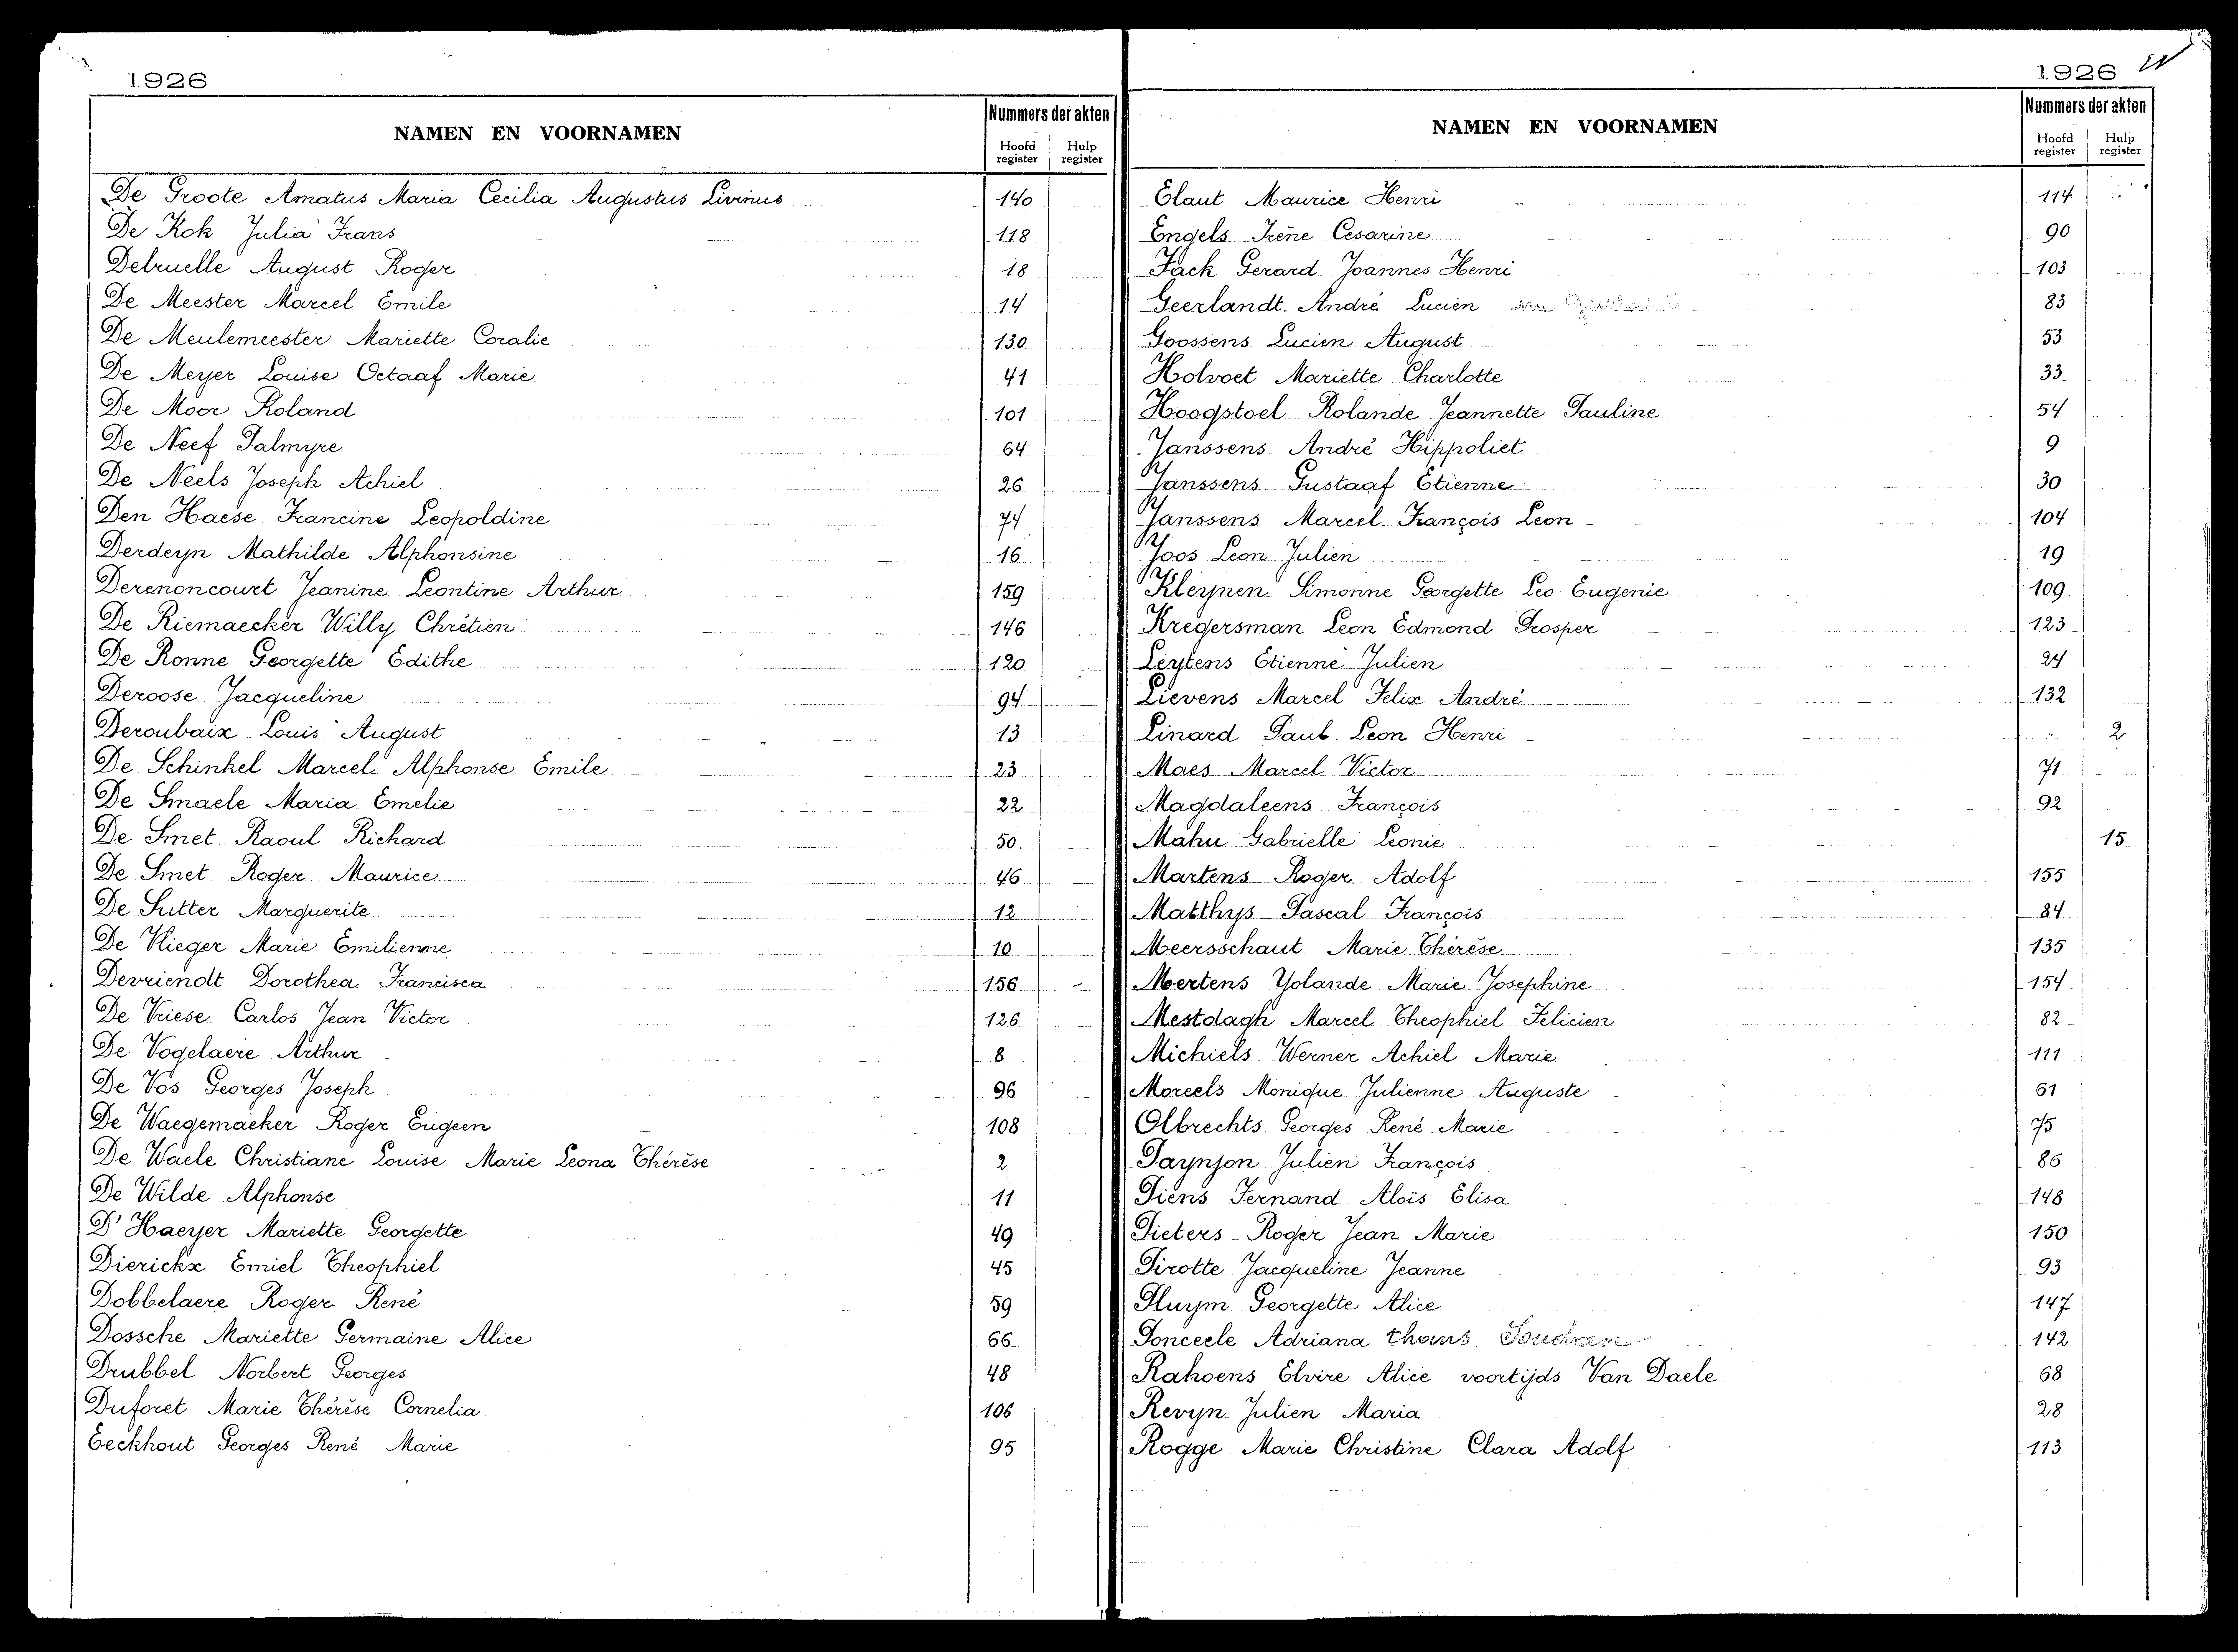 1926
NAMEN EN VOORNAMEN
Nummers der akten
Hoofd register
Hulp register
De Groote Amatus Maria Cecilia Augustus Livinus 140
De Kok Julia Frans 118
Delruelle August Roger 18
De Meester Marcel Emile 14
De Meulemeester Mariette Coralie 130
De Meyer Louise Octaaf Marie 41
De Moor Roland 101
De Neef Palmyre 64
De Neels Joseph Achiel 26
Den Haese Francine Leopoldine 74
Derdeyn Mathilde Alphonsine 16
Derenoncourt Jeanine Leontine Arthur 159
De Riemaecker Willy Chrétien 146
De Ronne Georgette Edithe 120
Deroose Jacqueline 94
Deroubaix Louis August 13
De Schinkel Marcel Alphonse Emile 23
De Smaele Maria Emelie 22
De Smet Raoul Richard 50
De Smet Roger Maurice 46
De Sutter Marguerite 12
De Vlieger Marie Emilienne 10
Devriendt Dorothea Francisca 156
De Vriese Carlos Jean Victor 126
De Vogelaere Arthur 8
De Vos Georges Joseph 96
De Waegemaeker Roger Eugeen 108
De Waele Christiane Louise Marie Leona Thérèse 2
De Wilde Alphonse 11
D'Haeyer Mariette Georgette 49
Dierickx Emiel Theophiel 45
Dobbelaere Roger René 59
Dossche Mariette Germaine Alice 66
Drubbel Norbert Georges 48
Duforet Marie Thérèse Cornelia 106
Eeckhout Georges René Marie 95
1926
NAMEN EN VOORNAMEN
Nummers der akten
Hoofd register
Hulp register
Elaut Maurice Henri 114
Engels Irène Cesarine 90
Fack Gerard Joannes Henri 103
Geerlandt André Lucien 83
Goossens Lucien August 53
Holvoet Mariette Charlotte 33
Hoogstoel Rolande Jeannette Pauline 54
Janssens André Hippoliet 9
Janssens Gustaaf Etienne 30
Janssens Marcel François Leon 104
Joos Leon Julien 19
Kleynen Simonne Georgette Leo Eugenie 109
Kregersman Leon Edmond Prosper 123
Leytens Etienne Julien 24
Lievens Marcel Felix André 132
Linard Paul Leon Henri 2
Maes Marcel Victor 71
Magdaleens François 92
Mahu Gabrielle Leonie 15
Martens Roger Adolf 155
Matthys Pascal François 84
Meersschaut Marie Thérèse 135
Mertens Yolande Marie Josephine 154
Mestdagh Marcel Theophiel Felicien 82
Michiels Werner Achiel Marie 111
Moreels Monique Julienne Auguste 61
Olbrechts Georges René Marie 75
Paynjon Julien François 86
Piens Fernand Aloïs Elisa 148
Pieters Roger Jean Marie 150
Pirotte Jacqueline Jeanne 93
Pluym Georgette Alice 147
Ponceele Adriana thans 142
Rahoens Elvire Alice voortijds Van Daele 68
Revyn Julien Maria 28
Rogge Marie Christine Clara Adolf 113